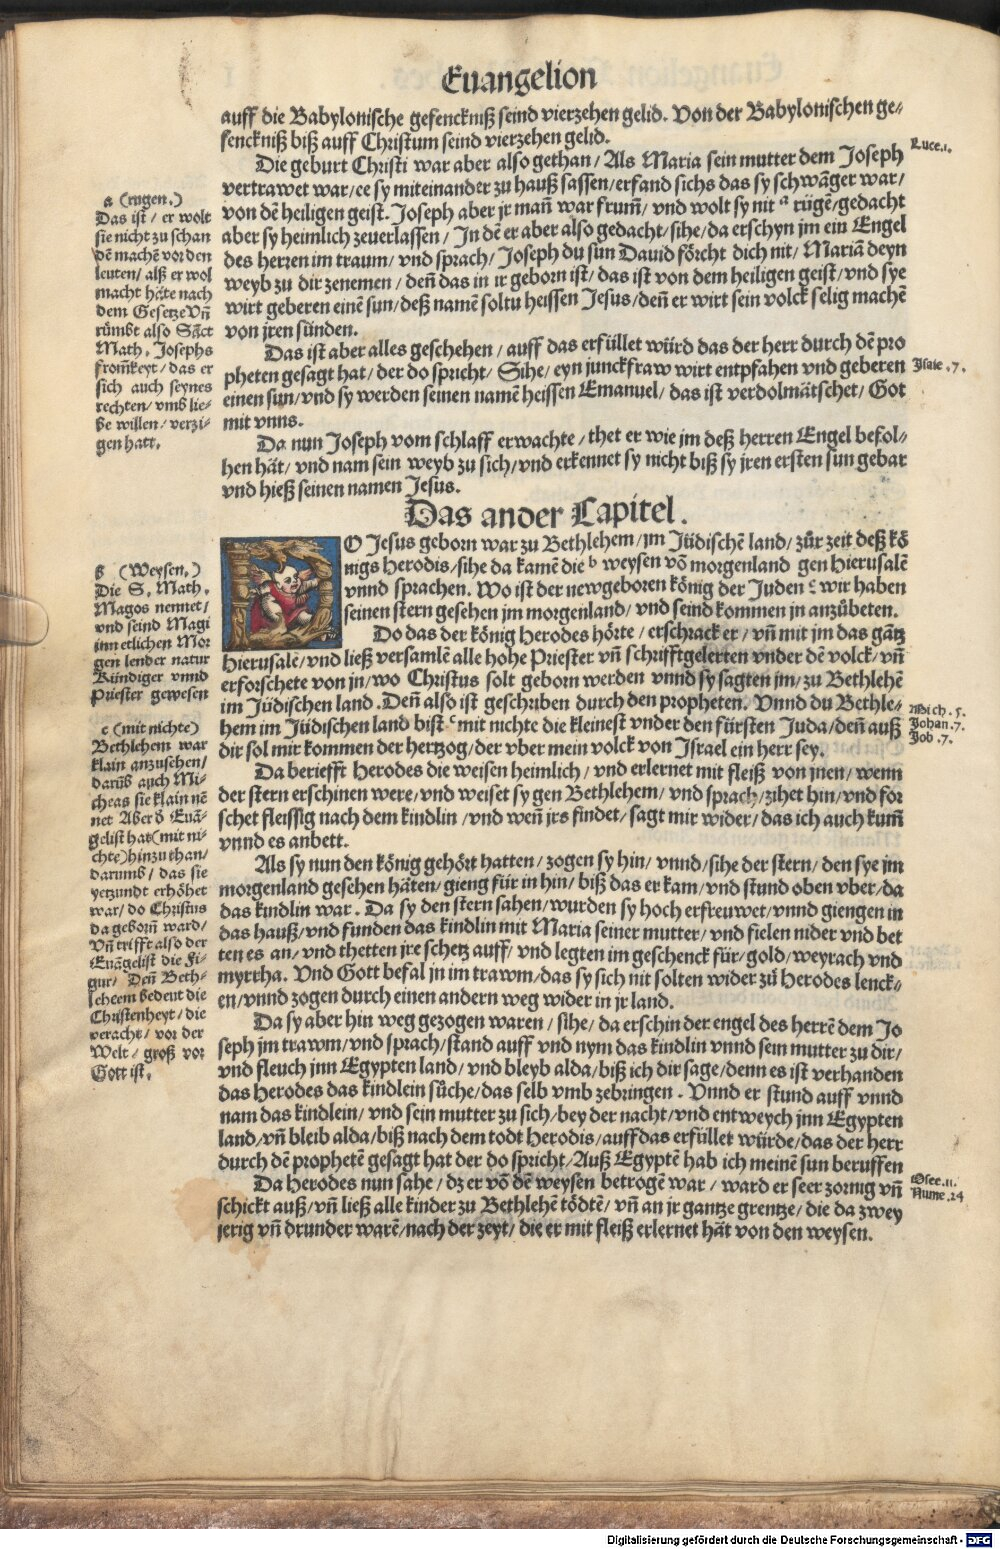 Euangelion
auff die Babylonische gefenckniß seind vierzehen gelid. Von der Babylonischen ge-
fenckniß biß auff Christum seind vierzehen gelid.
Die geburt Christi war aber also gethan/ Als Maria sein mutter dem Joseph
vertrawet war/ ee sy miteinander zu hauß sassen/ erfand sichs das sy schwãger war/
von dē heiligen geist. Joseph aber jr mañ war frum̃/ vnd wolt sy nit ᵃ rügē/ gedacht
aber sy heimlich zeuerlassen/ In dē er aber also gedacht/ sihe/ da erschyn jm ein Engel
des herren im traum/ vnd sprach/ Joseph du sun Dauid förcht dich nit/ Mariã deyn
weyb zu dir zenemen/ deñ das in ir geborn ist/ das ist von dem heiligen geist/ vnd sye
wirt geberen einē sun/ deß namē soltu heissen Jesus/ deñ er wirt sein volck selig machē
von jren sünden.
Das ist aber alles geschehen/ auff das erfüllet würd das der herr durch dē pro
pheten gesagt hat/ der do spricht/ Sihe/ eyn junckfraw wirt entpfahen vnd geberen
einen sun/ vnd sy werden seinen namē heissen Emanuel/ das ist verdolmätschet/ Got
mit vnns.
Da nun Joseph vom schlaff erwachte/ thet er wie jm deß herren Engel befol-
hen hät/ vnd nam sein weyb zu sich/ vnd erkennet sy nicht biß sy jren ersten sun gebar
vnd hieß seinen namen Jesus.
Luce.1.
Isaie.7.
a (rugen.)
Das ist/ er wolt
sie nicht zu schan
dē machē vor den
leuten/ alß er wol
macht häte nach
dem Gesetze Vñ
rümbt also Sãct
Math. Josephs
from̃keyt/ das er
sich auch seynes
rechten/ vmb lie-
be willen/ verzi-
gen hatt.
Das ander Capitel.
DO Jesus geborn war zu Bethlehem/ jm Jüdischē land/ zůr zeit deß kö
nigs Herodis/ sihe da kamē die ᵇ weysen võ morgenland gen Hierusalē
vnnd sprachen. Wo ist der newgeboren könig der Juden ? wir haben
seinen stern gesehen jm morgenland/ vnd seind kommen in anzůbeten.
Do das der könig Herodes hörte/ erschrack er/ vñ mit jm das gãtz
Hierusalē/ vnd ließ versamlē alle hohe Priester vñ schrifftgelerten vnder dē volck/ vñ
erforschete von jn/ wo Christus solt geborn werden vnnd sy sagten jm/ zu Bethlehē
im Jüdischen land. Deñ also ist geschriben durch den propheten. Vnnd du Bethle-
hem im Jüdischen land bist ᶜ mit nichte die kleinest vnder den fürsten Juda/ deñ auß
dir sol mir kommen der hertzog/ der vber mein volck von Israel ein herr sey.
Da berieff̃t Herodes die weisen heimlich/ vnd erlernet mit fleiß von jnen/ wenn
der stern erschinen were/ vnd weiset sy gen Bethlehem/ vnd sprach/ zihet hin/ vnd for
schet fleissig nach dem kindlin/ vnd weñ jrs findet/ sagt mir wider/ das ich auch kum̃
vnnd es anbett.
Als sy nun den könig gehört hatten/ zogen sy hin/ vnnd/ sihe der stern/ den sye jm
morgenland gesehen häten/ gieng für in hin/ biß das er kam/ vnd stund oben vber/ da
das kindlin war. Da sy den stern sahen/ wurden sy hoch erfreuwet/ vnnd giengen in
das hauß/ vnd funden das kindlin mit Maria seiner mutter/ vnd fielen nider vnd bet
ten es an/ vnd thetten jre schetz auff/ vnd legten im geschenck für/ gold/ weyrach vnd
myrrha. Vnd Gott befal jn im trawm/ das sy sich nit solten wider zů Herodes lenck-
en/ vnnd zogen durch einen andern weg wider in jr land.
Da sy aber hin weg gezogen waren/ sihe/ da erschin der engel des herrē dem Jo
seph jm trawm/ vnd sprach/ stand auff vnd nym das kindlin vnnd sein mutter zu dir/
vnd fleuch jnn Egypten land/ vnd bleyb alda/ biß ich dir sage/ denn es ist verhanden
das Herodes das kindlein sůche/ das selb vmb zebringen. Vnnd er stund auff vnnd
nam das kindlein/ vnd sein mutter zu sich/ bey der nacht/ vnd entweych jnn Egypten
land/ vñ bleib alda/ biß nach dem todt Herodis/ auff das erfüllet würde/ das der herr
durch dē prophetē gesagt hat der do spricht/ Auß Egyptē hab ich meinē sun beruffen
Da Herodes nun sahe/ dz er võ dē weysen betrogē war/ ward er seer zornig vñ
schickt auß/ vñ ließ alle kinder zu Bethlehē tödtē/ vñ an jr gantze grentze/ die da zwey
jerig vñ drunder warē/ nach der zeyt/ die er mit fleiß erlernet hät von den weysen.
b (Weysen.)
Die S. Math.
Magos nennet/
vnd seind Magi
jnn etlichen Mor
gen lender natur
Kündiger vnnd
Priester gewesen
c (mit nichte)
Bethlehem war
klain anzusehen/
darũb auch Mi-
cheas sie klain nē
net Aber d̕ Euã-
gelist hat (mit ni-
chte) hinzu than/
darumb/ das sie
yetzundt erhöhet
war/ do Christus
da geborñ ward/
Vñ trifft also der
Euãgelist die Fi-
gur/ Deñ Beth-
leheem bedeut die
Christenheyt/ die
veracht/ vor der
Welt/ groß vor
Gott ist.
Mich.5.
Johan.7.
Job.7.
Osee.11.
Nume.24
Digitalisierung gefördert durch die Deutsche Forschungsgemeinschaft - DFG